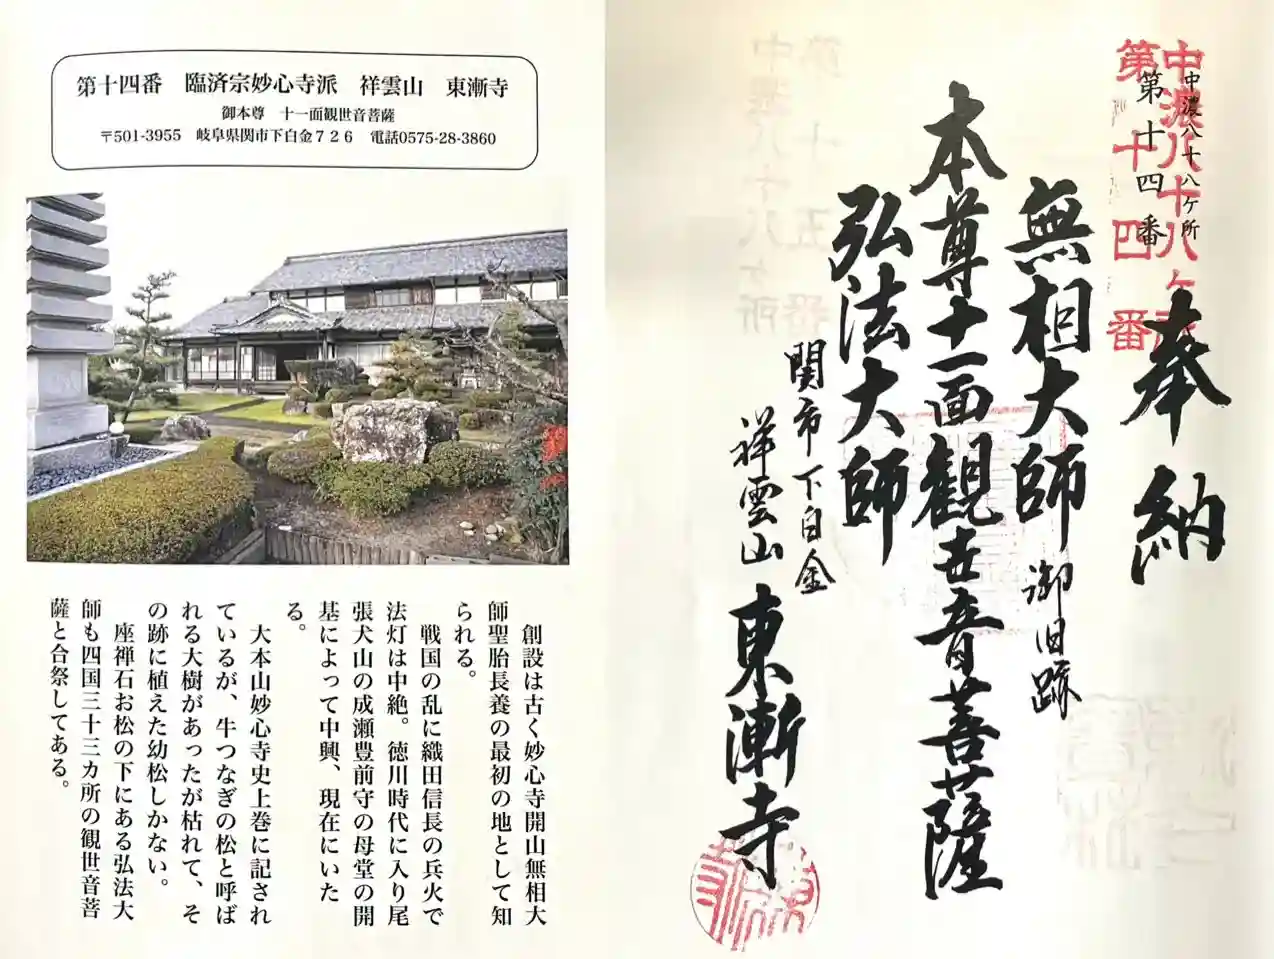 第十四番　臨済宗妙心寺派　祥雲山　東漸寺
御本尊　十一面観世音菩薩
〒501-3955　岐阜県関市下白金７２６　電話0575-28-3860
創設は古く妙心寺開山無相大
師聖胎長養の最初の地として知
られる。
戦国の乱に織田信長の兵火で
法灯は中絶。徳川時代に入り尾
張犬山の成瀬豊前守の母堂の開
基によって中興、現在にいた
る。
大本山妙心寺史上巻に記され
ているが、牛つなぎの松と呼ば
れる大樹があったが枯れて、そ
の跡に植えた幼松しかない。
座禅石お松の下にある弘法大
師も四国三十三カ所の観世音菩
薩と合祭してある。
中濃八十八ヶ所
第十四番
中濃八十八ヶ所
第十四番
奉納
無相大師御旧跡
本尊十一面観世音菩薩
弘法大師
関市下白金
祥雲山東漸寺